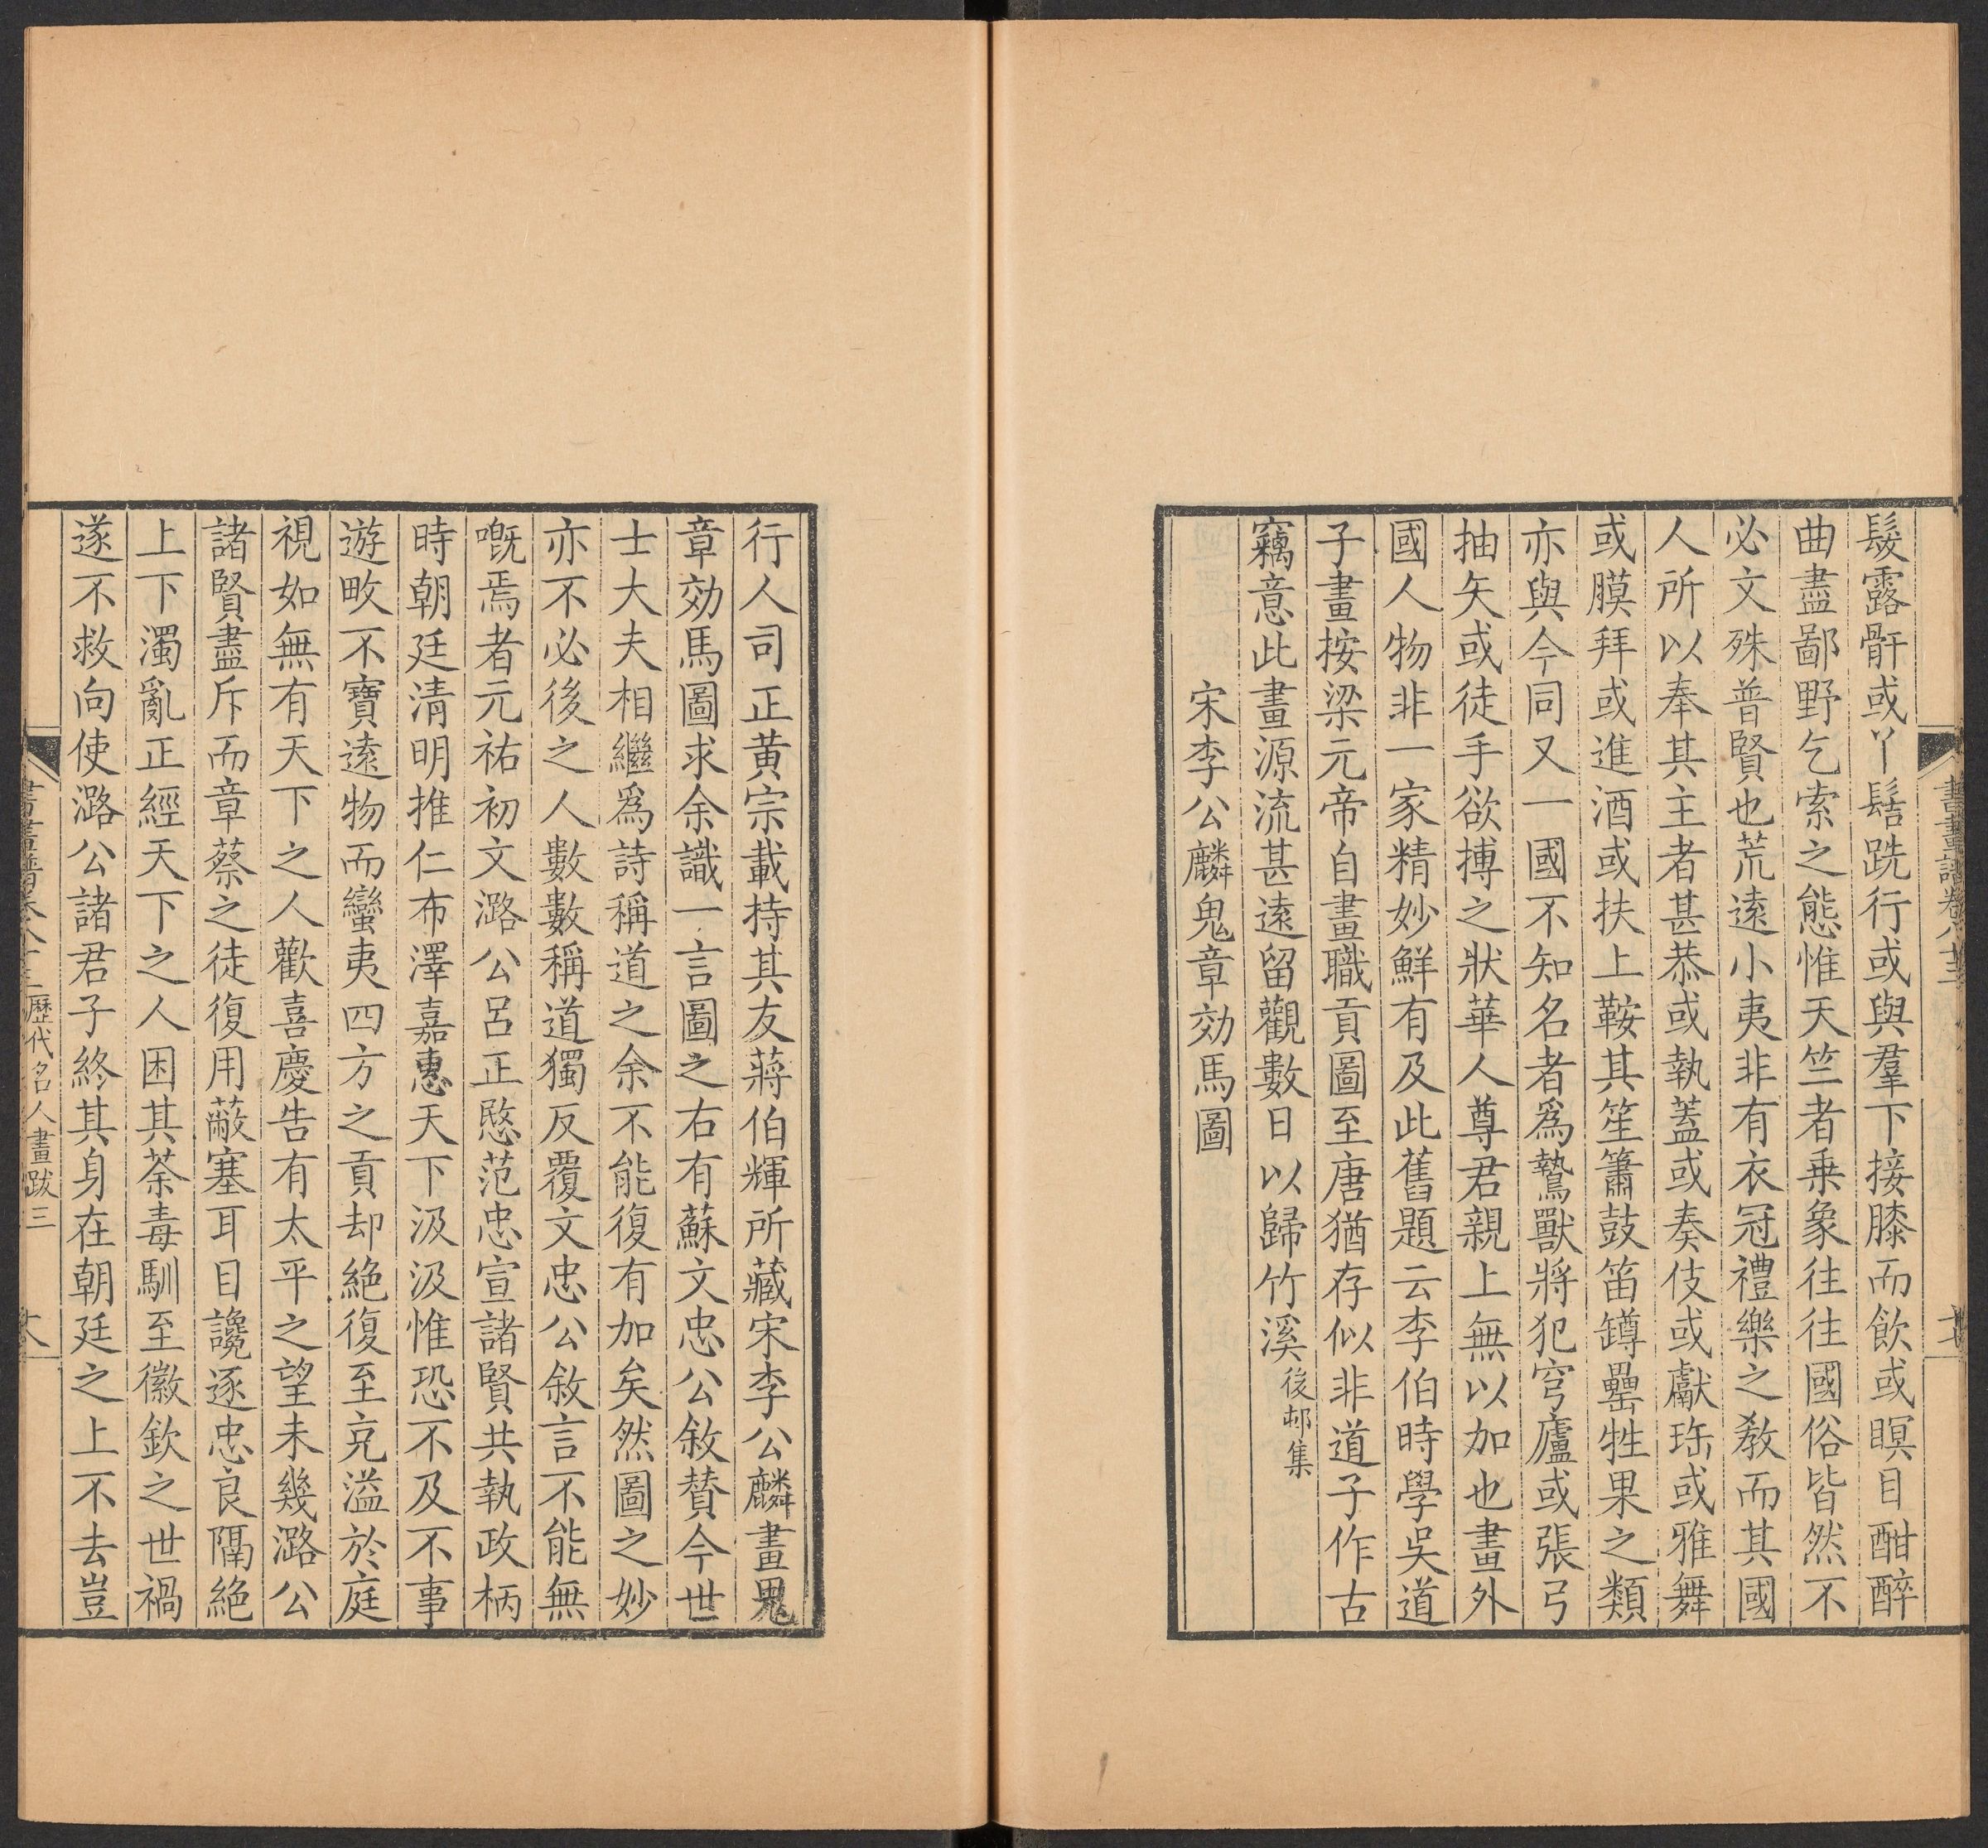 髮露骭或丫髻跣行或與羣下接膝而飲或瞑目酣醉
曲盡鄙野乞索之態惟天竺者乗象往往國俗皆然不
必文殊普賢也荒遠小夷非有衣冠禮樂之教而其國
人所以奉其主者甚恭或執蓋或奏伎或獻珤或雅舞
或膜拜或進酒或扶上鞍其笙簫鼓笛罇罍牲果之類
亦與今同又一國不知名者爲鷙獸將犯穹廬或張弓
抽矢或徒手欲搏之狀華人尊君親上無以加也畫外
國人物非一家精妙鮮有及此舊題云李伯時學吳道
子畫按梁元帝自畫職貢圖至唐猶存似非道子作古
竊意此畫源流甚遠留觀數日以歸竹溪後邨集
宋李公麟鬼章効馬圖
行人司正黄宗載持其友蔣伯輝所藏宋李公麟畫鬼
章効馬圖求余識一言圖之右有蘇文忠公敘贊今世
士大夫相繼爲詩稱道之余不能復有加矣然圖之妙
亦不必後之人數數稱道獨反覆文忠公敘言不能無
嘅焉者元祐初文潞公呂正愍范忠宣諸賢共執政柄
時朝廷清明推仁布澤嘉惠天下汲汲惟恐不及不事
遊畋不寶遠物而蠻夷四方之貢却絶復至充溢於庭
視如無有天下之人歡喜慶告有太平之望未幾潞公
諸賢盡斥而章蔡之徒復用蔽塞耳目讒逐忠良隔絶
上下濁亂正經天下之人困其荼毒馴至徽欽之世禍
遂不救向使潞公諸君子終其身在朝廷之上不去豈
書畫譜卷八十三 歷代名人畫跋三